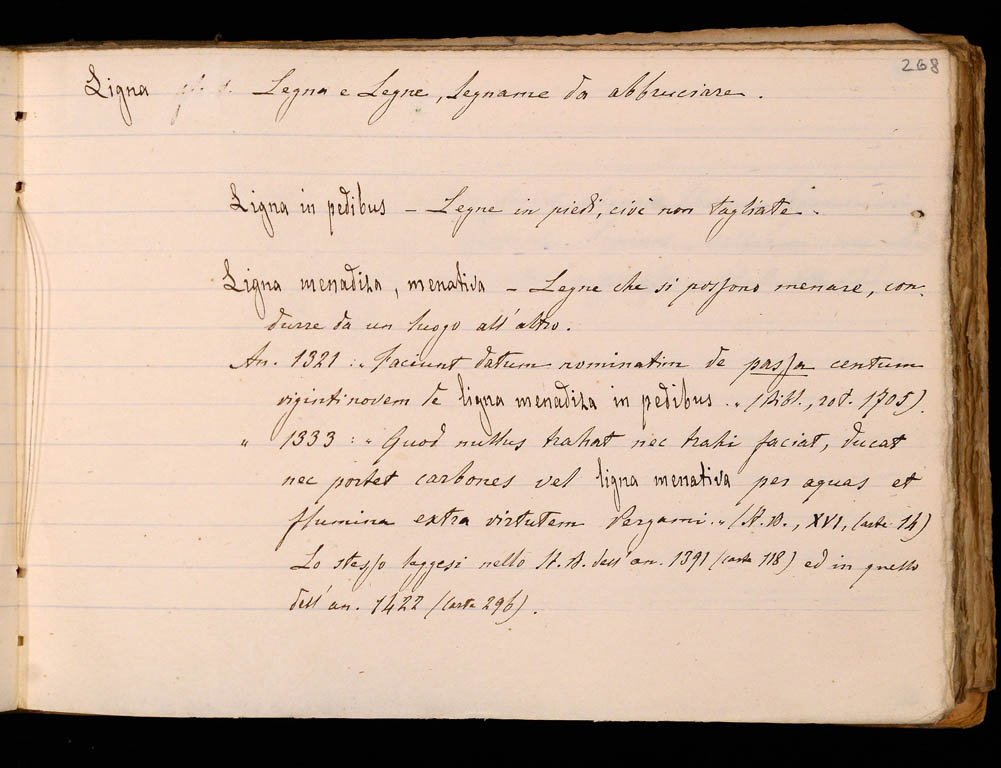 268
Ligna Legna e Legne, legname da abbruciare.
Ligna in pedibus – Legne in piedi, cioè non tagliate.
Ligna menadiza, menativa – Legne che si possono menare, con-
durre da un luogo all'altro.
An. 1321 : „ Faciunt datum nominatim de passa centum
vigintinovem de ligna menadiza in pedibus. „ (Bibl., rot. 1705).
„ 1333 : „ Quod nullus trahat nec trahi faciat, ducat
nec portet carbones vel ligna menativa per aquas et
flumina extra virtutem Pergami. „ (St. B., XVI, Carta 14)
Lo stesso leggesi nello St. B. dell' an. 1391 (Carta 118) ed in quello
dell' an. 1422 (Carta 296).